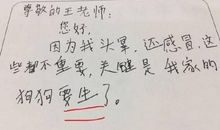 尊敬的王老师：
您好，
因为我头晕，还感冒，这
些都不重要，关键是我家的
狗狗要生了。